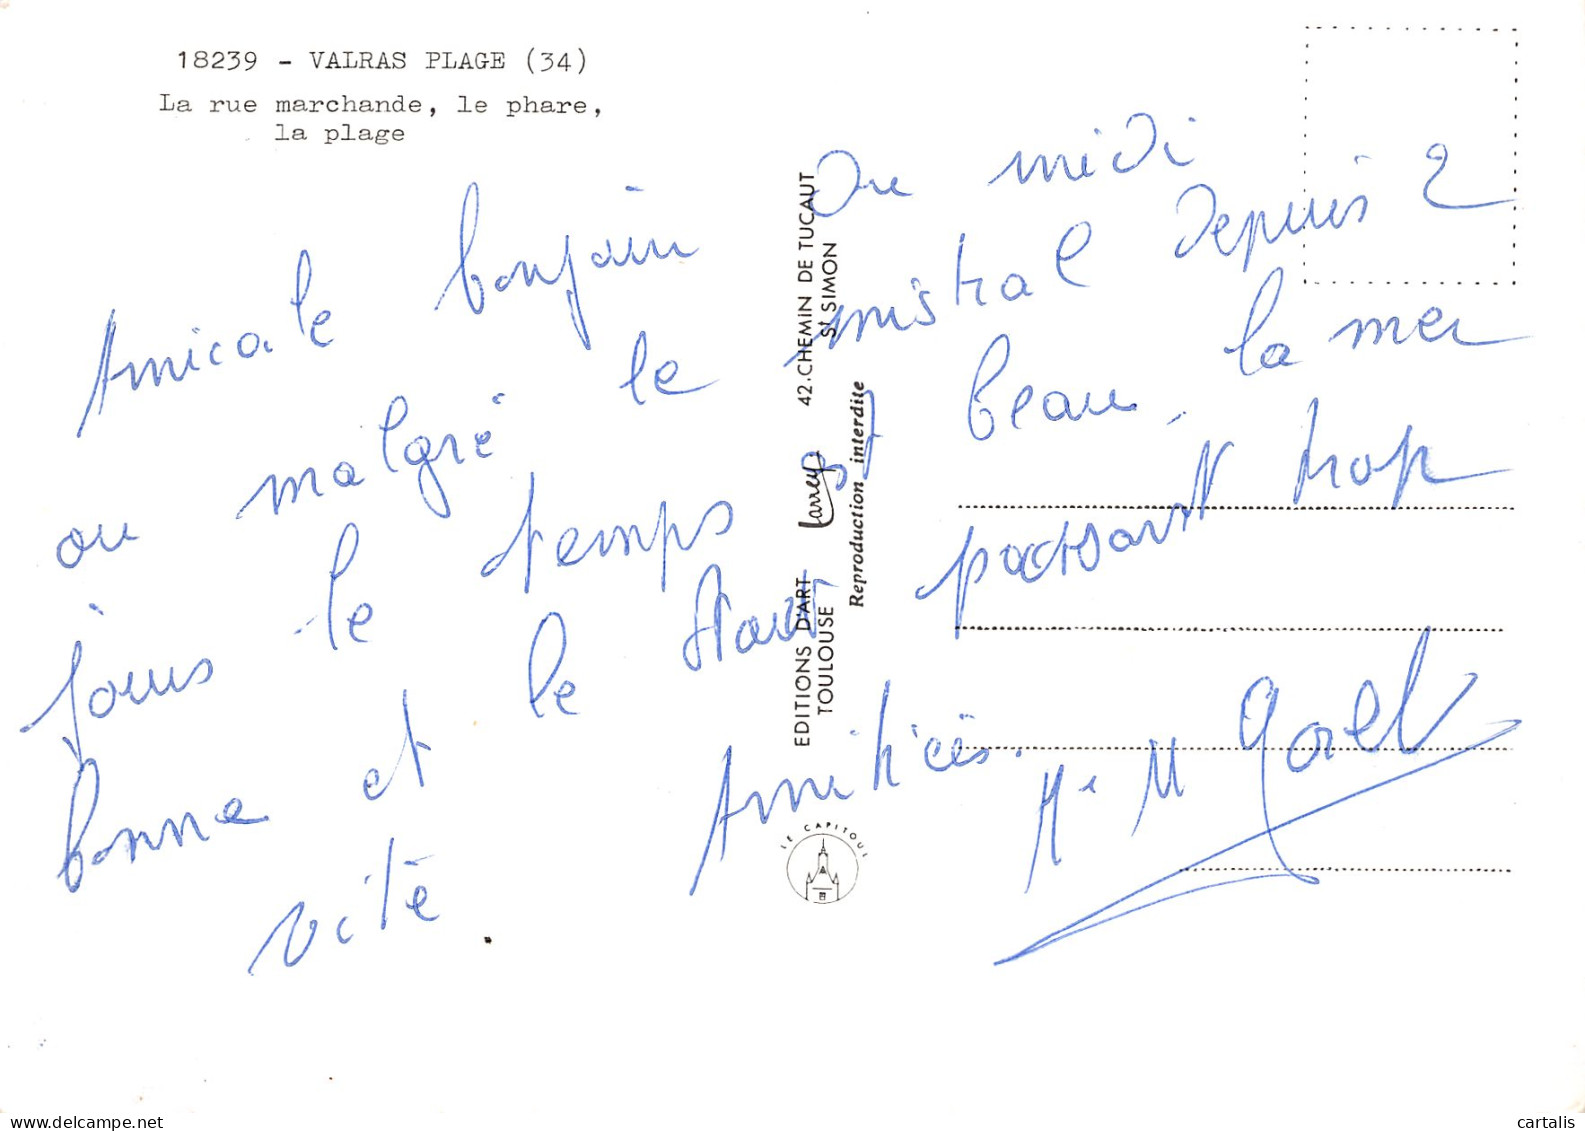 18239 - VALRAS PLAGE (34)
La rue marchande, le phare,
la plage
Amicale bonjour du midi
ou malgré le mistral depuis 2
jours le temps est beau, la mer
bonne et le passant trop
vite. Amitiés.
M. M Gorel
EDITIONS D'ART Larrey 42.CHEMIN DE TUCAUT
TOULOUSE St SIMON
Reproduction interdite
LE CAPITOUL
cartalis
delcampe.net